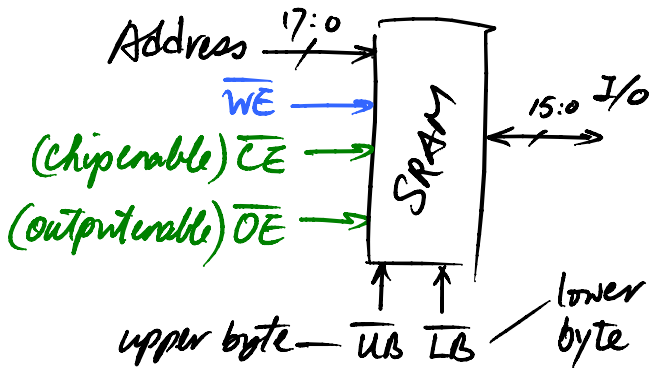 Address 17:0
W̅E̅
(chip enable) C̅E̅
(output enable) O̅E̅
SRAM
15:0 I/O
upper byte — U̅B̅ L̅B̅
lower byte